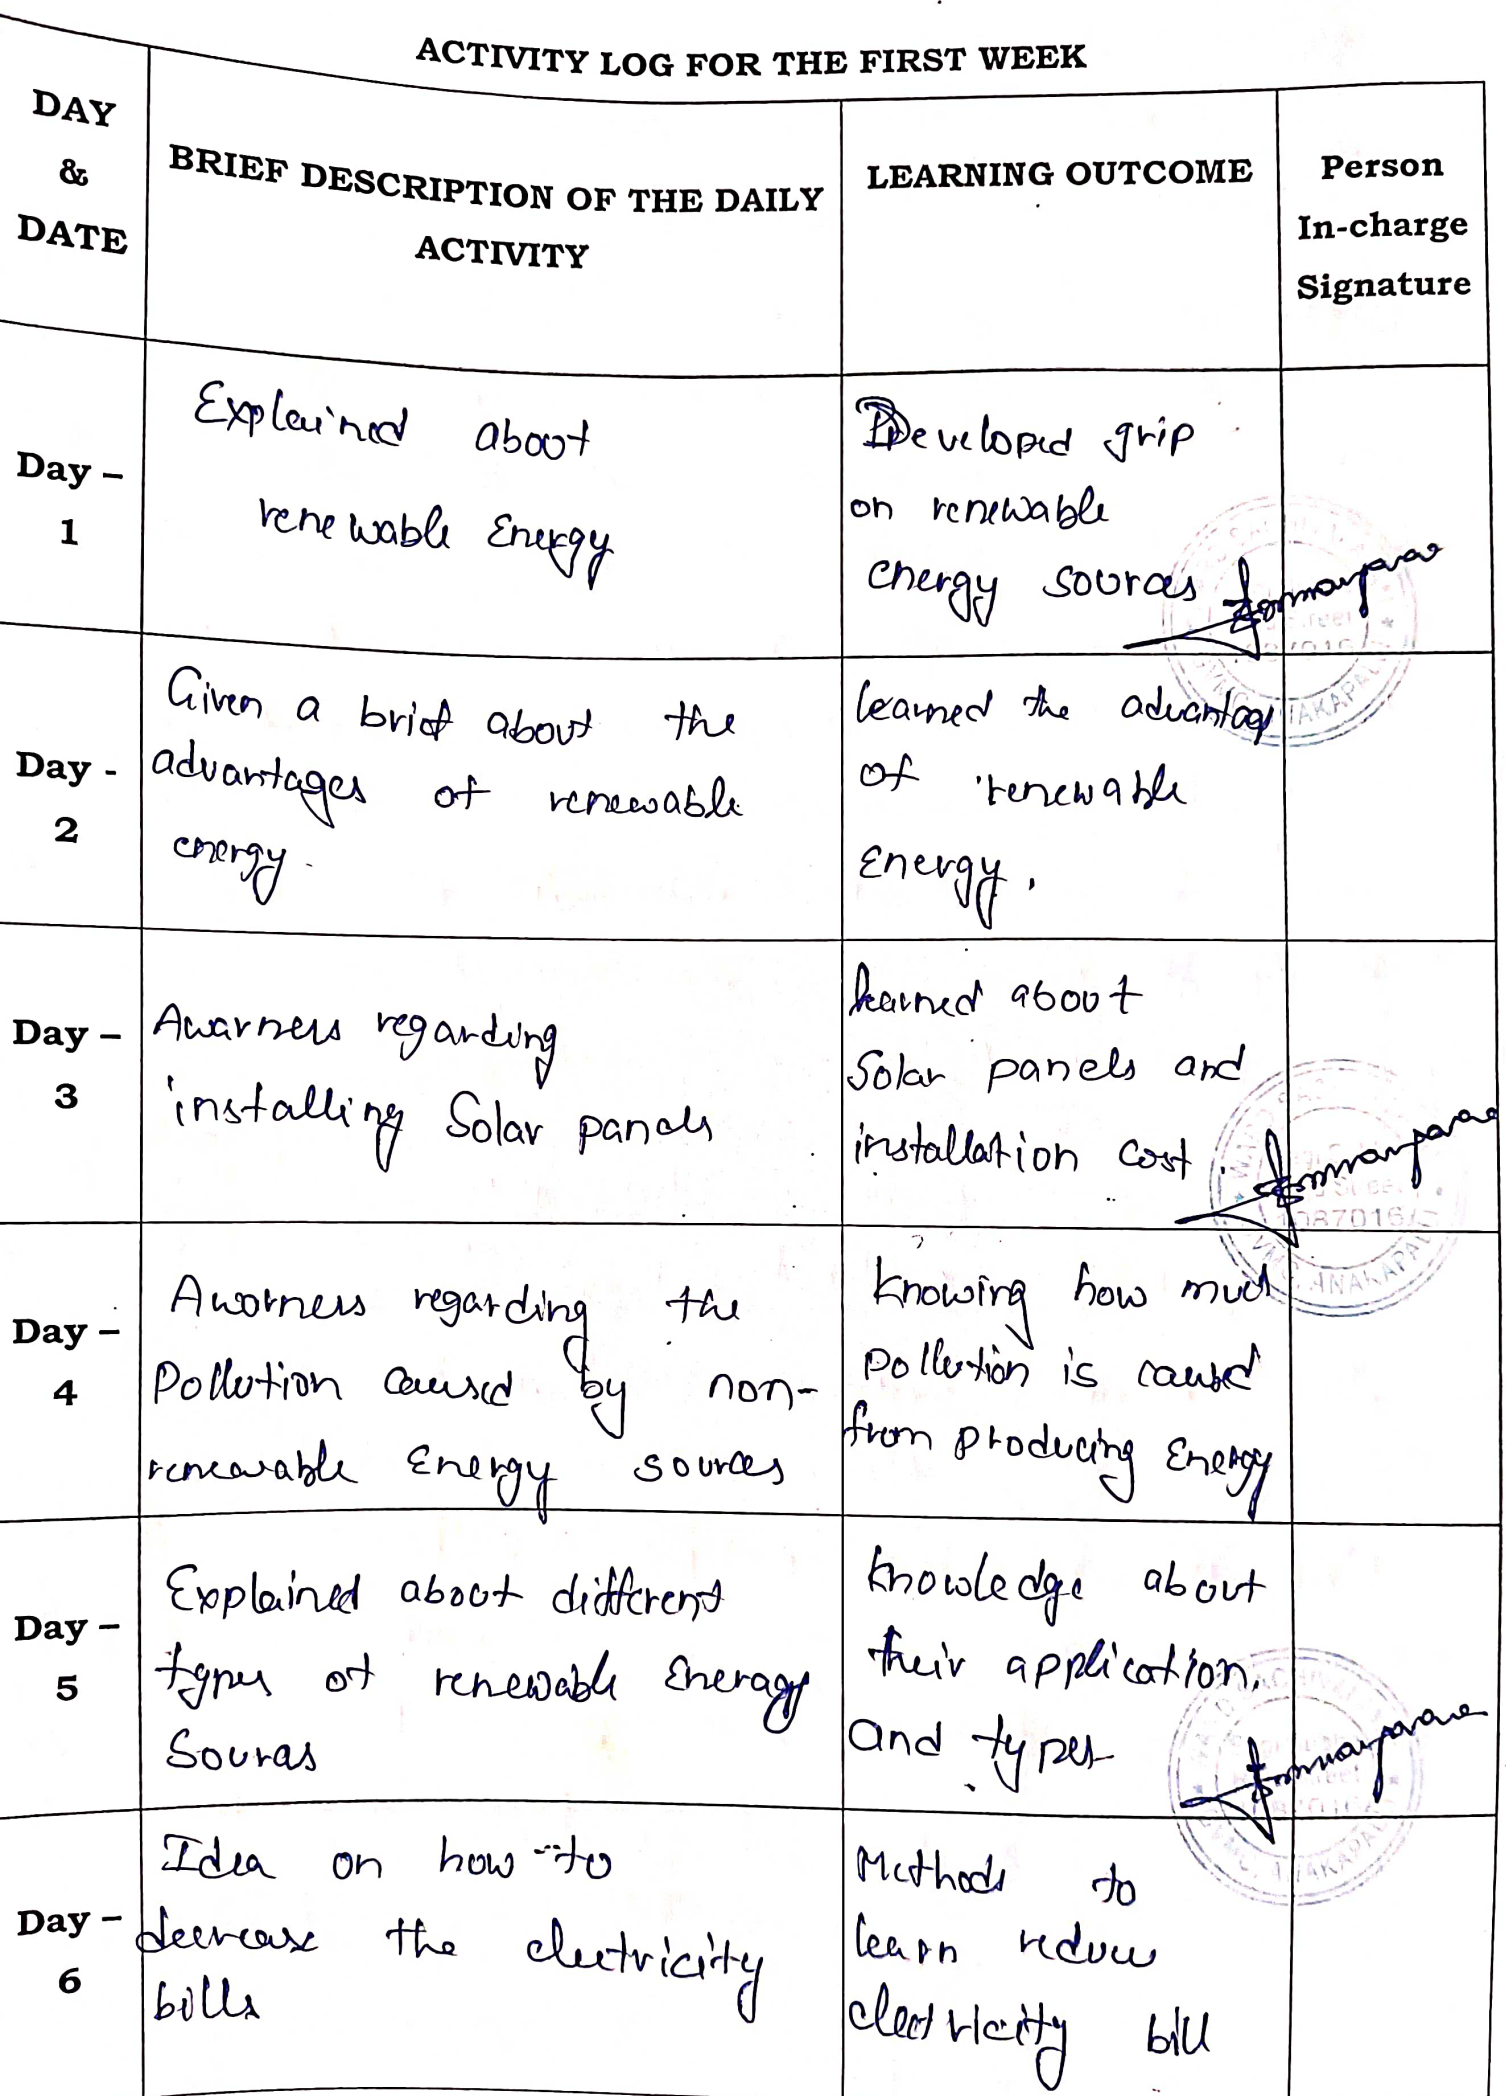 ACTIVITY LOG FOR THE FIRST WEEK
DAY
&
DATE
BRIEF DESCRIPTION OF THE DAILY
ACTIVITY
LEARNING OUTCOME
Person
In-charge
Signature
Day –
1
Explained about
renewable Energy
Developed grip
on renewable
energy sources
Day -
2
Given a brief about the
advantages of renewable
energy.
learned the advantag
of renewable
Energy.
Day –
3
Awarness regarding
installing Solar panels
learned about
Solar panels and
installation cost.
Day –
4
Awarness regarding the
Pollution caused by non-
renewable Energy sources
Knowing how much
pollution is caused
from producing Energy
Day –
5
Explained about different
types of renewable Eneragy
Sources
knowledge about
their application.
and types
Day –
6
Idea on how to
decrease the electricity
bills
Methods to
learn reduce
electricity bill